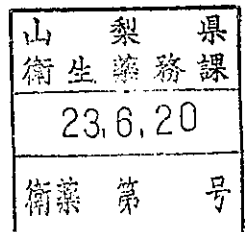 山梨県
衛生薬務課
23.6.20
衛薬 第 号